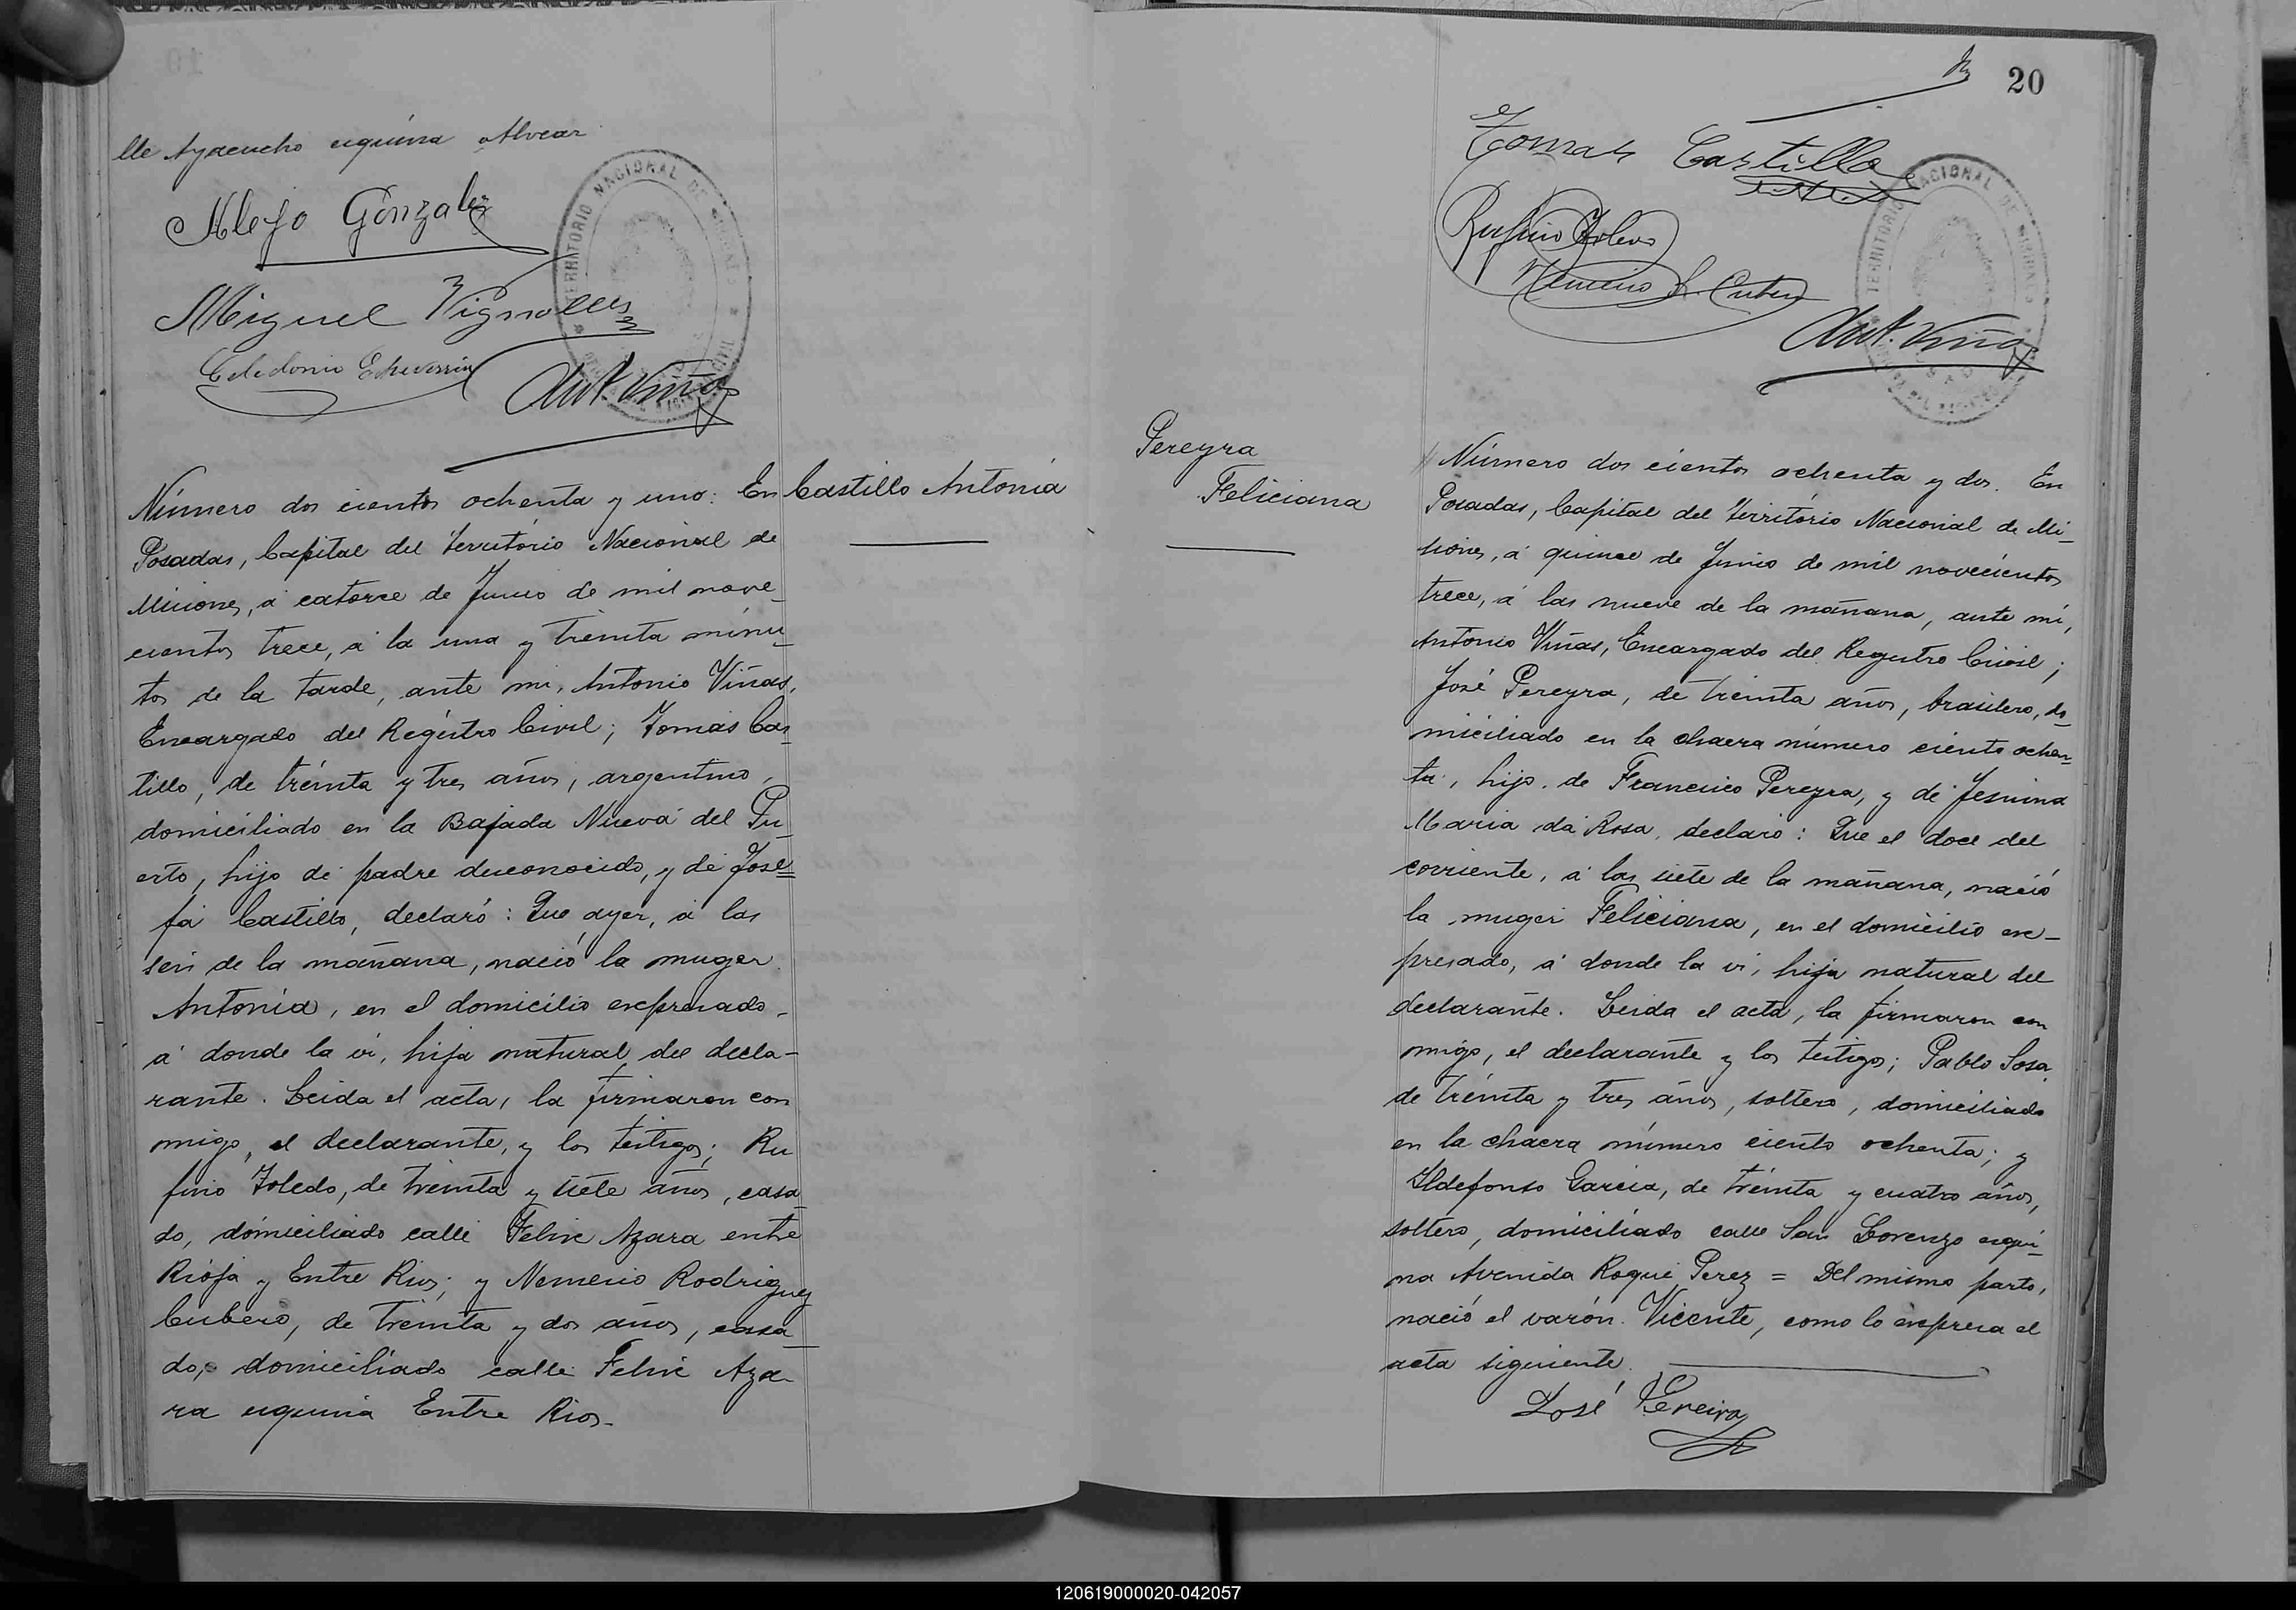 lle Ayacucho esquina Alvear
Alejo Gonzalez
Miguel Vignolles
Celedonio Echeverria
Ant. Viñas
TERRITORIO NACIONAL DE MISIONES
Castillo Antonia
Número dos cientos ochenta y uno: En
Posadas, Capital del Território Nacional de
Misiones, á catorce de Junio de mil nove_
cientos trece, á la una y treinta minu_
tos de la tarde, ante mi, Antonio Viñas,
Encargado del Registro Civil; Tomás Cas_
tillo, de tréinta y tres años, argentino,
domiciliado en la Bajada Nueva del Pu_
erto, hijo de padre desconocido, y de Jose=
fa Castillo, declaró: Que ayer, á las
seis de la mañana, nació la muger
Antonia, en el domicilio expresado,
á donde la ví, hija natural del decla-
rante. Leida el acta, la firmaron con
migo, el declarante, y los testigos; Ru
fino Toledo, de treinta y siete años, casa_
do, domiciliado calle Felix Azara entre
Rioja y Entre Rios; y Nemesio Rodriguez
Cubero, de treinta y dos años, casa_
do, domiciliado calle Felix Aza-
ra esquina Entre Rios-
20
Tomas Castillo
Rufino Toledo
Nemesio R. Cubero
Ant. Viñas
TERRITORIO NACIONAL DE MISIONES
Pereyra
Feliciana
Número dos cientos ochenta y dos. En
Posadas, Capital del Território Nacional de Mi_
siones, á quince de Junio de mil novecientos
trece, á las nueve de la mañana, ante mí,
Antonio Viñas, Encargado del Registro Civil;
José Pereyra, de treinta años, brasilero, do_
miciliado en la chacra número ciento ochen_
ta, hijo de Francisco Pereyra, y de Jesuina
Maria da Rosa, declaró: Que el doce del
corriente, á las siete de la mañana, nació
la muger Feliciana, en el domicilio ex-
presado, á donde la ví, hija natural del
declarante. Leida el acta, la firmaron con
migo, el declarante y los testigos; Pablo Sosa
de tréinta y tres años, soltero, domiciliado
en la chacra número ciento ochenta; y
Ildefonso Garcia, de tréinta y cuatro años,
soltero, domiciliado calle San Lorenzo esqui_
na Avenida Roque Perez = Del mismo parto,
nació el varón Vicente, como lo expresa el
acta siguiente.
José Pereira
120619000020-042057